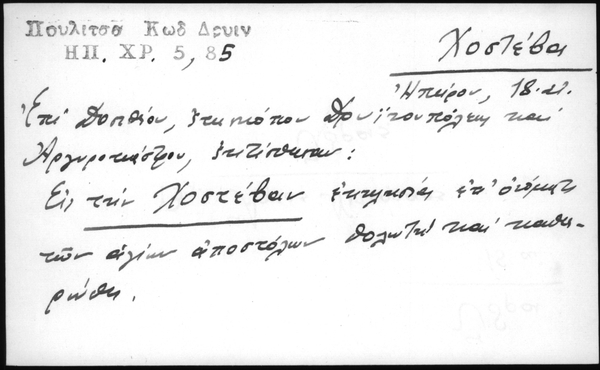 Πουλιτσα Κωδ Δρυιν
ΗΠ. ΧΡ. 5, 85
Χοστέβα
Ἠπείρου, 18. αι.
Ἐπί Δοσιθέου, ἐπισκόπου Δρυϊνουπόλεως καί
Ἀργυροκάστρου, ἐκτίσθησαν:
Εἰς τήν Χοστέβαν ἐκκλησία ἐπ' ὀνόματι
τῶν ἁγίων ἀποστόλων θολωτή καί καθιε-
ρώθη.